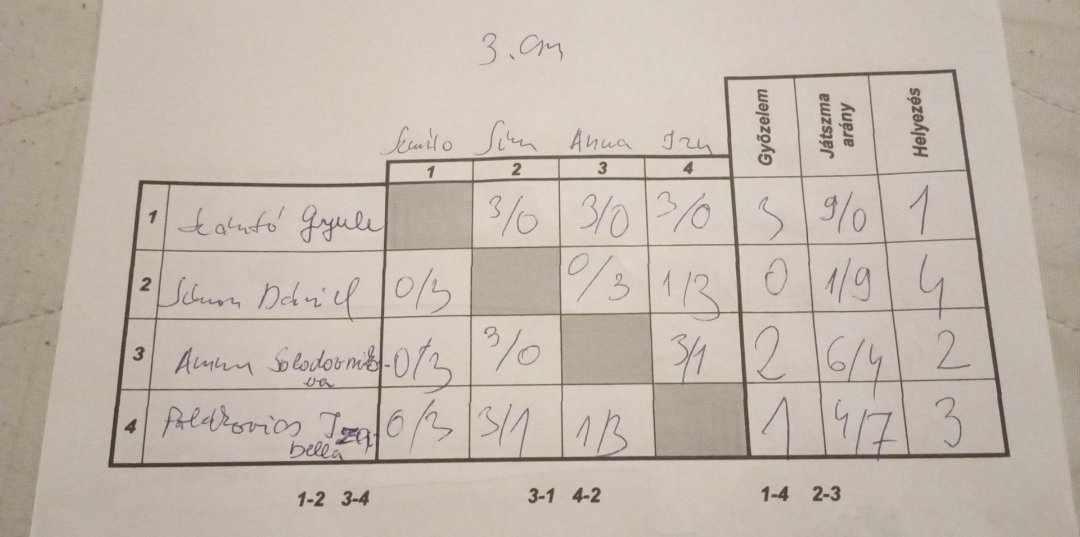 3. cm
Győzelem Játszma arány Helyezés
Simo Anna Izu
1 2 3 4
1 Gyula 3/0 3/0 3/0 3 9/0 1
2 Simon Dániel 0/3 0/3 1/3 0 1/9 4
3 Anna Solodovnikova 0/3 3/0 3/1 2 6/4 2
4 Izabella 0/3 3/1 1/3 1 4/7 3
1-2 3-4 3-1 4-2 1-4 2-3